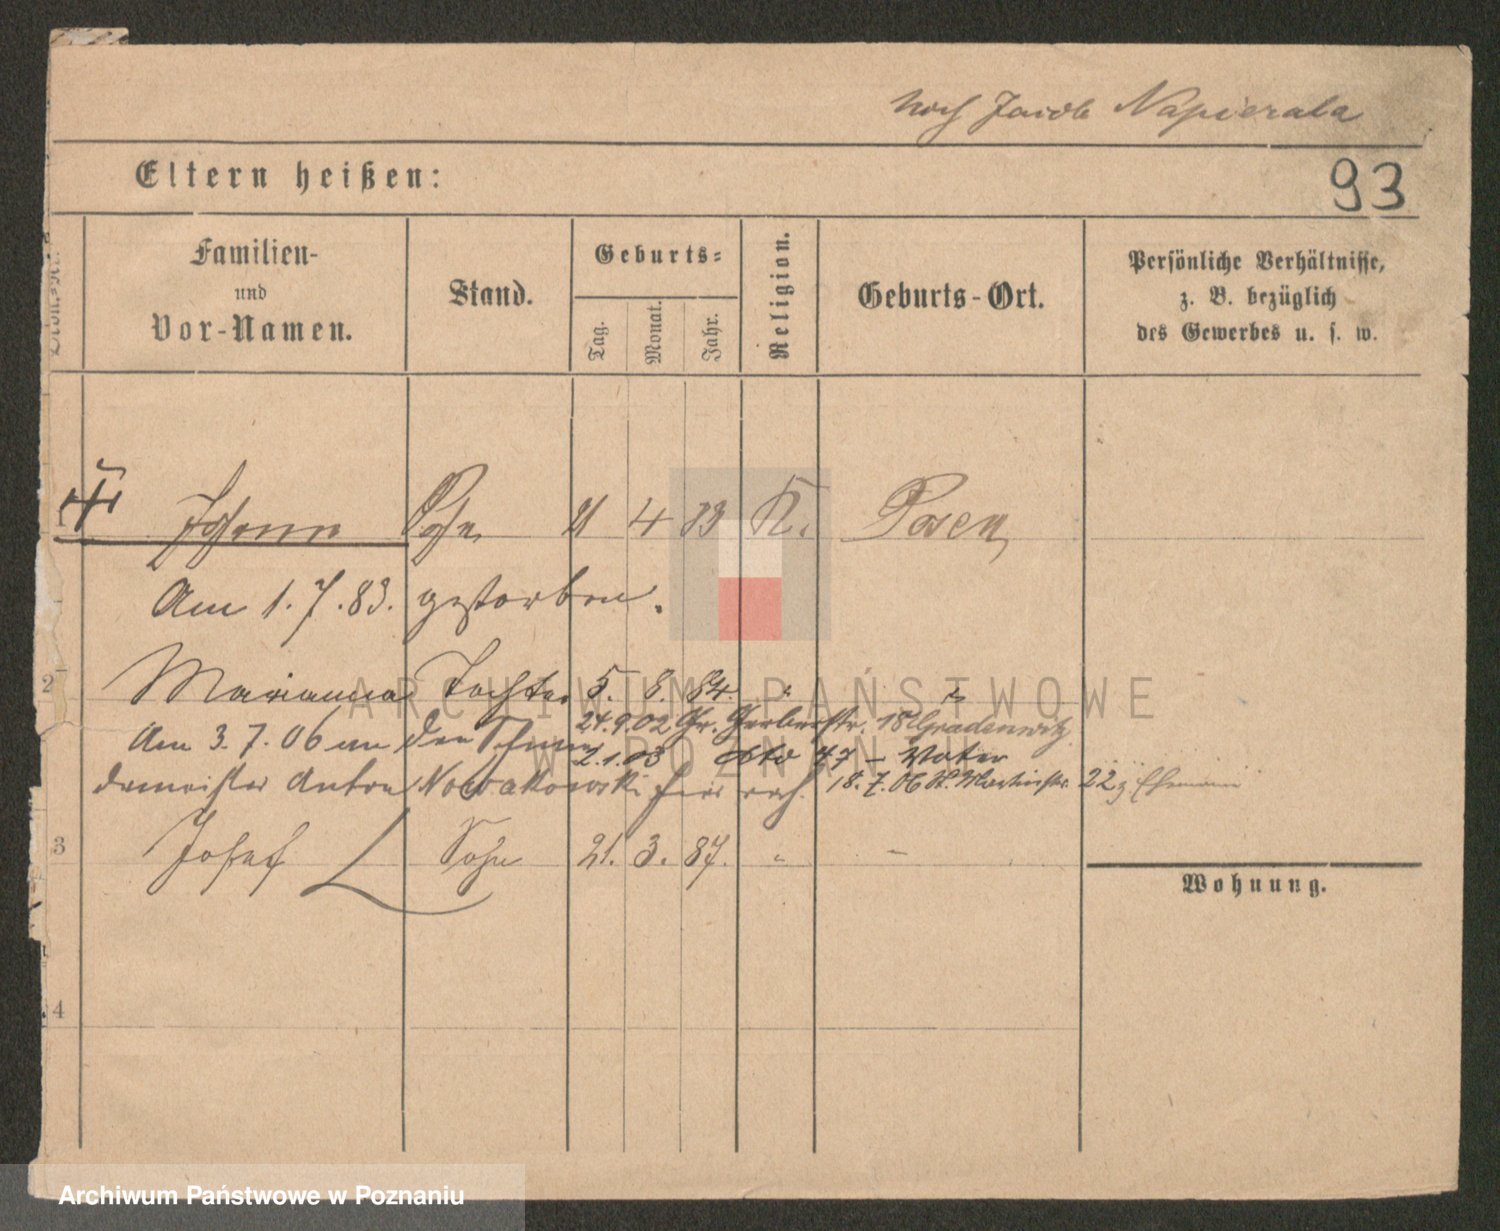 noch Jacob Napierala
Eltern heißen:
93
Familien-
und
Vor-Namen.
Stand.
Geburts-
Tag.
Monat.
Jahr.
Religion.
Geburts-Ort.
Persönliche Verhältnisse,
z. B. bezüglich
des Gewerbes u. s. w.
1 Johann Sohn 21 4 83 K. Posen
Am 1.7.83. gestorben.
2 Marianna Tochter 5. 8. 84. " "
24.9.02 Gr. Gerberstr. 18 Gradenwitz
Am 3.7.06 an den Schmie
2.1.03 dto 47 – Vater
demeister Anton Nowakowski
18.7.06 St. Martinstr. 22 z Ehemann
3 Josef Sohn 21. 3. 87. " –
Wohnung.
4
ARCHIWUM PAŃSTWOWE
W POZNANIU
Archiwum Państwowe w Poznaniu